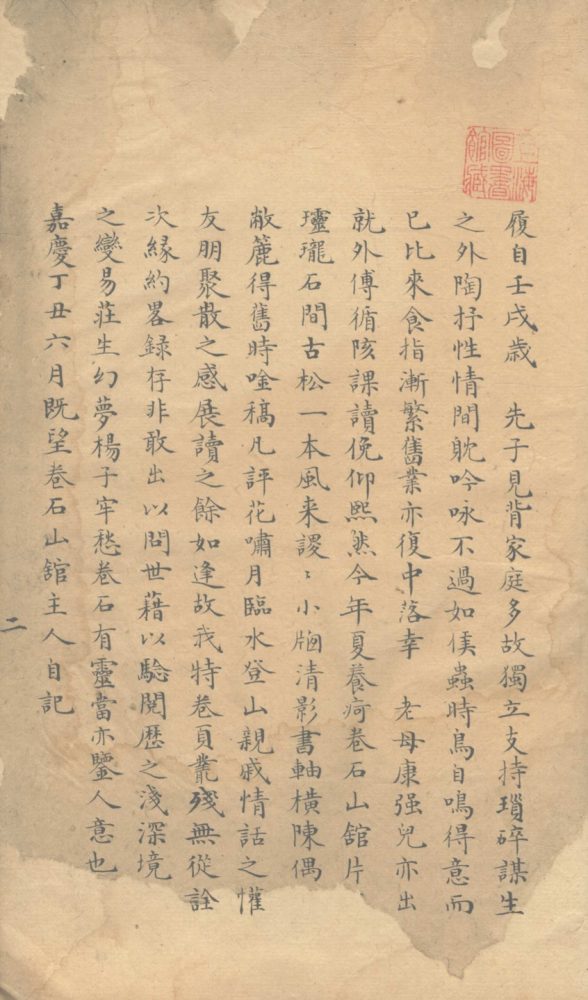 履自壬戌歲　先子見背家庭多故獨立支持瑣碎謀生
之外陶抒性情間躭吟咏不過如候蟲時鳥自鳴得意而
已比來食指漸繁舊業亦復中落幸　老母康强兒亦出
就外傅循陔課讀俛仰熙然今年夏養疴卷石山舘片
瓊瓏石間古松一本風来謖〻小牕清影書軸橫陳偶
敝簏得舊時唫稿凡評花嘯月臨水登山親戚情話之懽
友朋聚散之感展讀之餘如逢故我特卷頁叢殘無從詮
次緣約畧録存非敢出以問世藉以驗閱歷之淺深境
之變易莊生幻夢楊子牢愁卷石有靈當亦鑒人意也
嘉慶丁丑六月既望卷石山舘主人自記
二
圖書
館藏